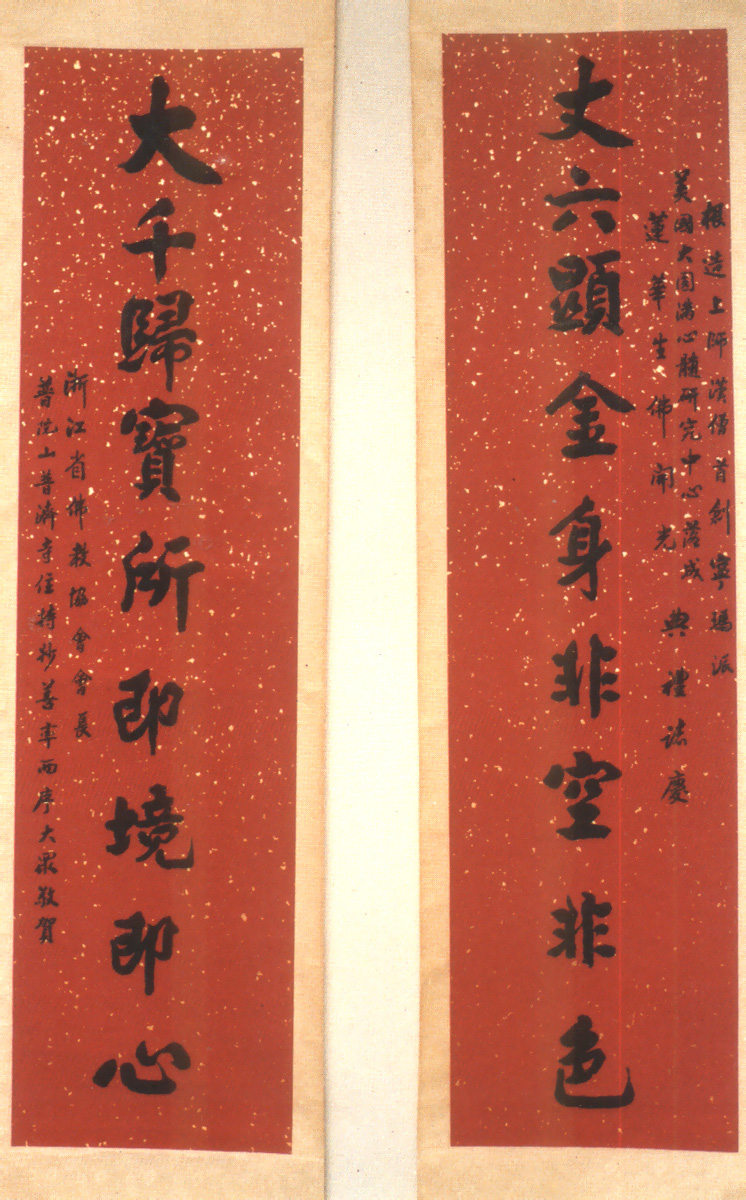 根造上師漢僧首創寧瑪派
美國大圓滿心髓研究中心落成
蓮華生佛開光典禮誌慶
丈六顯金身非空非色
大千歸寶所即境即心
浙江省佛教協會會長
普陀山普濟寺住持妙善率两序大眾敬賀